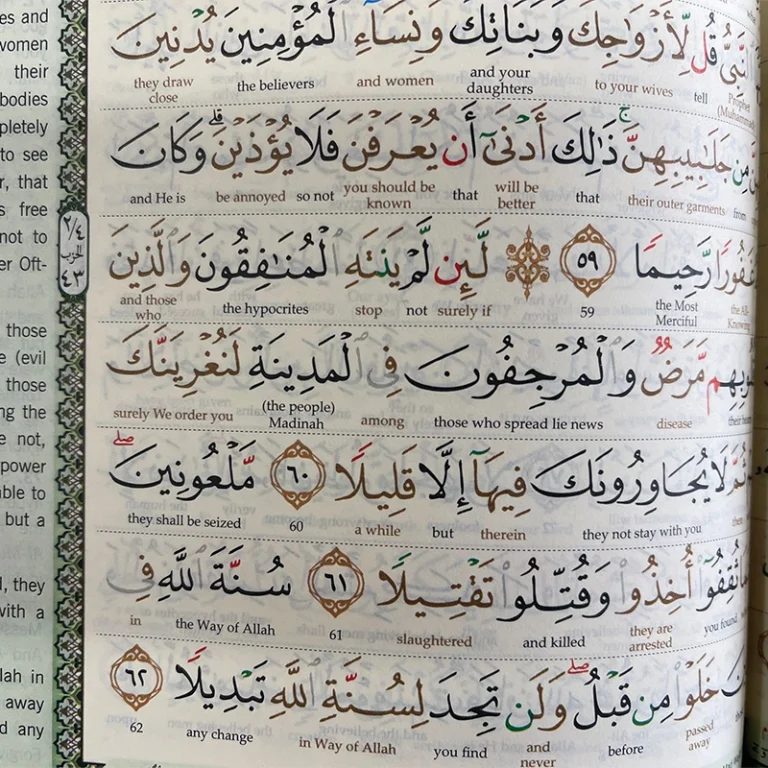 النَّبِيُّ قُل لِّأَزْوَاجِكَ وَبَنَاتِكَ وَنِسَاءِ الْمُؤْمِنِينَ يُدْنِينَ
Prophet (Muhammad) tell to your wives and your daughters and women the believers they draw close
مِن جَلَابِيبِهِنَّ ۚ ذَٰلِكَ أَدْنَىٰ أَن يُعْرَفْنَ فَلَا يُؤْذَيْنَ ۗ وَكَانَ
from their outer garments that will be better that you should be known so not be annoyed and He is
رَّحِيمًا ٥٩ لَّئِن لَّمْ يَنتَهِ الْمُنَافِقُونَ وَالَّذِينَ
the All-Knowing the Most Merciful 59 surely if not stop the hypocrites and those who
مَّرَضٌ وَالْمُرْجِفُونَ فِي الْمَدِينَةِ لَنُغْرِيَنَّكَ
disease those who spread lie news among (the people) Madinah surely We order you
لَا يُجَاوِرُونَكَ فِيهَا إِلَّا قَلِيلًا ٦٠ مَّلْعُونِينَ ۖ
they not stay with you therein but a while 60 they shall be seized
ثُقِفُوا أُخِذُوا وَقُتِّلُوا تَقْتِيلًا ٦١ سُنَّةَ اللَّهِ فِي
you found they are arrested and killed slaughtered 61 the Way of Allah in
خَلَوْا مِن قَبْلُ ۖ وَلَن تَجِدَ لِسُنَّةِ اللَّهِ تَبْدِيلًا ٦٢
passed away before and never you find in Way of Allah any change 62
٢/٤
الحزب
٤٣
es and
women
their
bodies
pletely
to see
r, that
s free
not to
er Oft-
those
e (evil
those
ng the
e not,
power
able to
but a
d, they
with a
llah in
away
d any